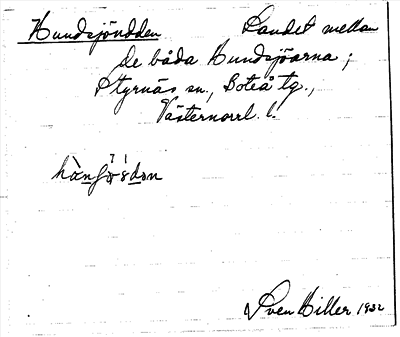 Hundsjöudden Landet mellan
de båda Hundsjöarna;
Styrnäs sn., Boteå tg.,
Västernorrl. l.
Sven Hiller 1932